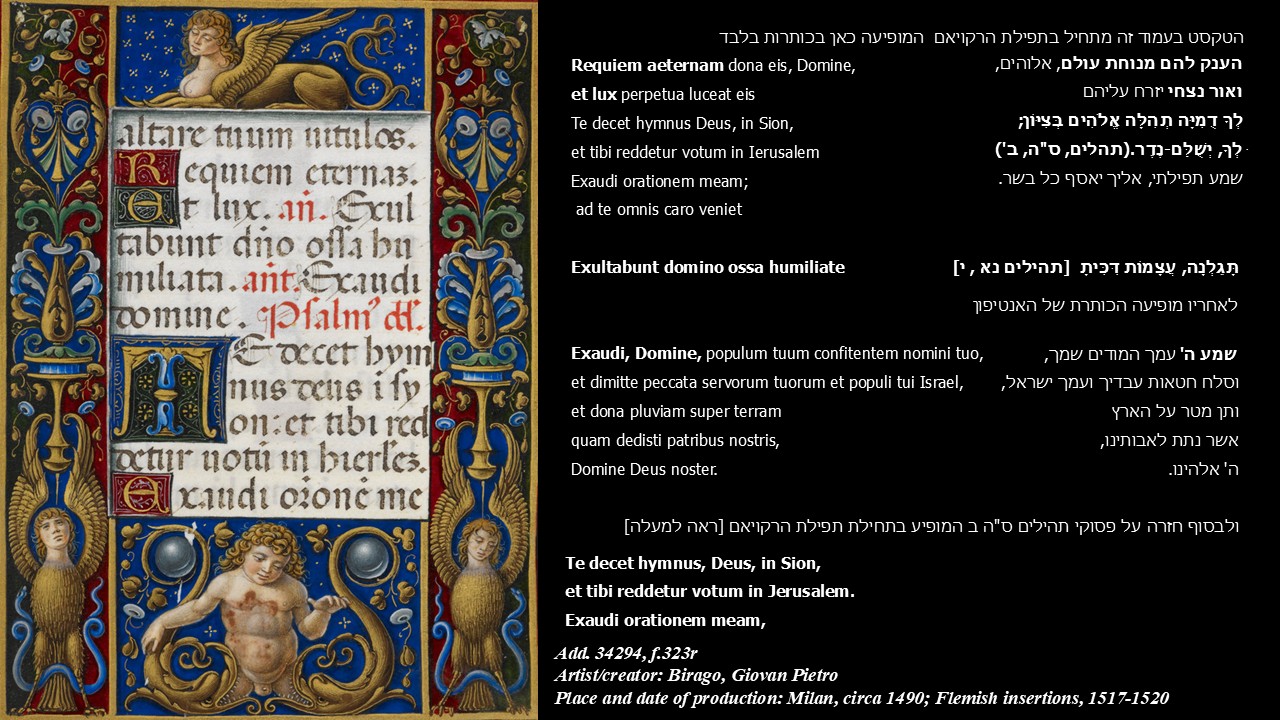 altare tuum uitulos.
Requiem eternaz.
Et lux. an̄. Exul
tabunt dn̄o ossa hu
miliata. ant̄. Exaudi
domine. Psalm⁹
TE decet hym
nus deus i sy
on: et tibi red
detur uotū in
Exaudi oroōnē me
הטקסט בעמוד זה מתחיל בתפילת הרקויאם המופיעה כאן בכותרות בלבד
Requiem aeternam dona eis, Domine,
et lux perpetua luceat eis
Te decet hymnus Deus, in Sion,
et tibi reddetur votum in Ierusalem
Exaudi orationem meam;
ad te omnis caro veniet
הענק להם מנוחת עולם, אלוהים,
ואור נצחי יזרח עליהם
לְךָ דֻמִיָּה תְהִלָּה אֱלֹהִים בְּצִיּוֹן;
לְךָ, יְשֻׁלַּם-נֶדֶר.(תהלים, ס"ה, ב')
שמע תפילתי, אליך יאסף כל בשר.
Exultabunt domino ossa humiliate
תָּגֵלְנָה, עֲצָמוֹת דִּכִּיתָ [תהילים נא , י]
לאחריו מופיעה הכותרת של האנטיפון
Exaudi, Domine, populum tuum confitentem nomini tuo,
et dimitte peccata servorum tuorum et populi tui Israel,
et dona pluviam super terram
quam dedisti patribus nostris,
Domine Deus noster.
שמע ה' עמך המודים שמך,
וסלח חטאות עבדיך ועמך ישראל,
ותן מטר על הארץ
אשר נתת לאבותינו,
ה' אלהינו.
ולבסוף חזרה על פסוקי תהילים ס"ה ב המופיע בתחילת תפילת הרקויאם [ראה למעלה]
Te decet hymnus, Deus, in Sion,
et tibi reddetur votum in Jerusalem.
Exaudi orationem meam,
Add. 34294, f.323r
Artist/creator: Birago, Giovan Pietro
Place and date of production: Milan, circa 1490; Flemish insertions, 1517-1520